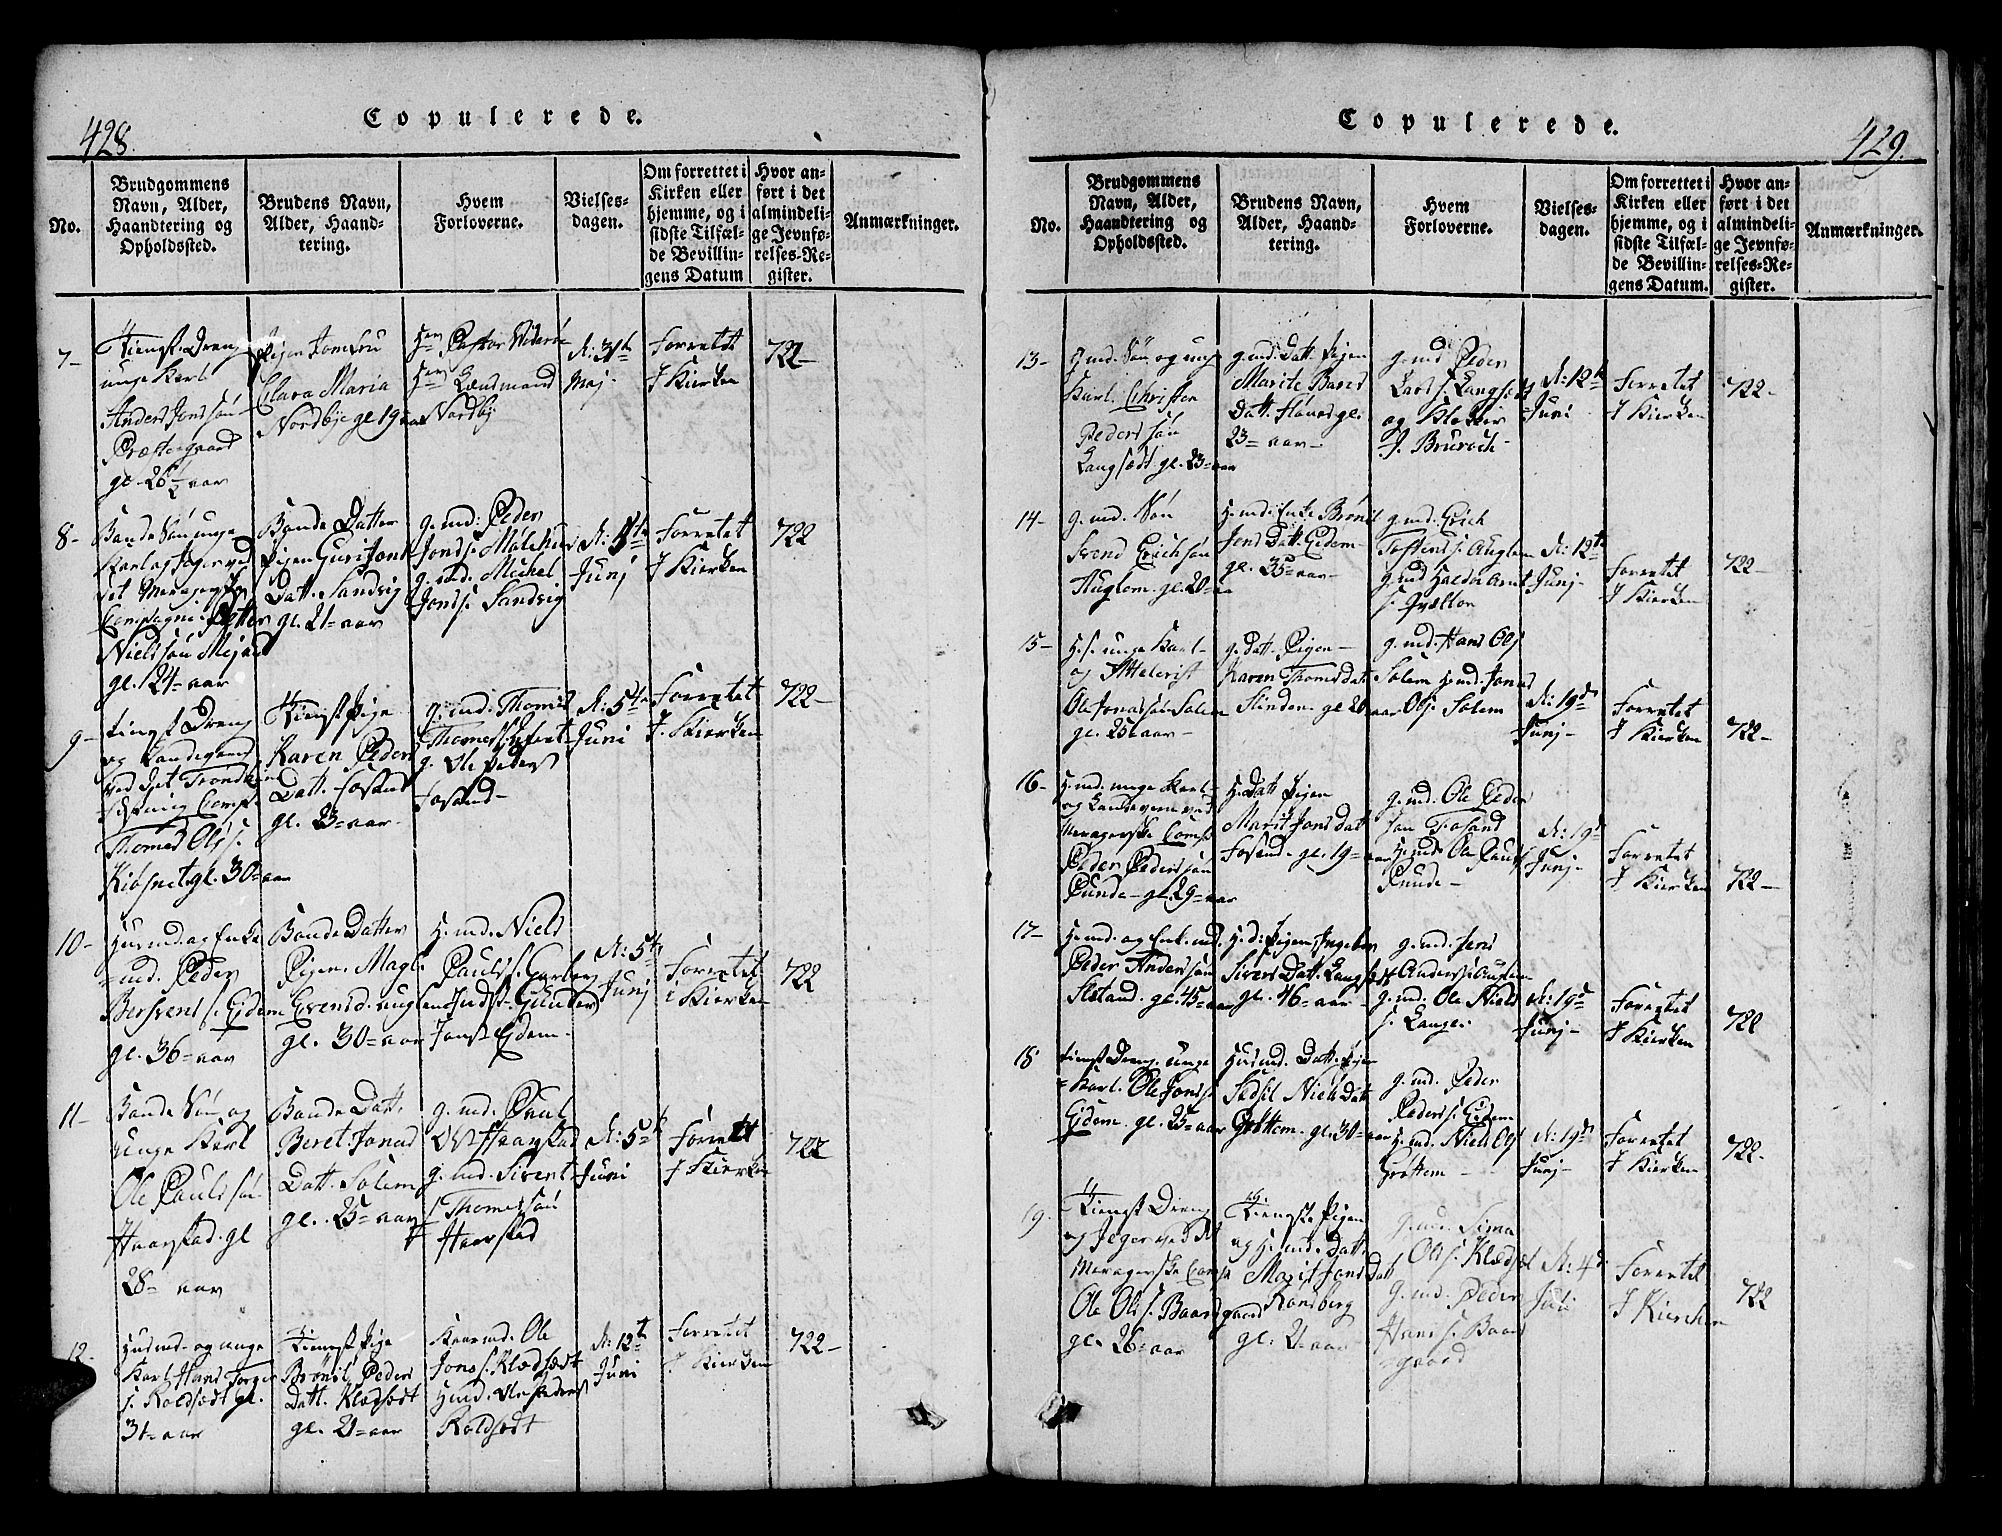 428.
Copulerede.
No.
Brudgommens
Navn, Alder,
Haandtering og
Opholdssted.
Brudens Navn,
Alder, Haand-
tering.
Hvem
Forloverne.
Vielses-
dagen.
Om forrettet i
Kirken eller
hjemme, og i
sidste Tilfæl-
de Bevillin-
gens Datum
Hvor an-
ført i det
almindeli-
ge Jevnfø-
relses-Re-
gister.
Anmærkninger.
7-
Tienst. Dreng
unge Karl
Anders Jonssøn
Præstegaard
gl. 26½ aar
Pigen Jomfru
Clara Maria
Nordbye gl 19 aar
Hr Pastor
Hr Lænsmand
Nordby
d: 31te
Maj-
Forrettet
I Kierken
722-
8-
Bonde Søn unge
Karl og Jæger ved
det Meragerske
Compagnie Petter
Nielssøn
gl. 24= aar
Bonde Datter
Pigen Guri Jons
Datt. Sandvig
gl. 21= aar
g. md. Peder
Jons s.
g. md. Michel
Jons s. Sandvig
Junj
Forrettet
I Kierken
722
9-
Tienst Dreng
og Landeværn
ved det Trondhiem
Comp.
Thomas Ols s.
gl. 30= aar
Tienst Pige
Karen Peders
Datt. Fosand
gl. 23= aar-
g. md. Thomas
Thomes s.
g. Ole Peders
Fosand-
d: 5te
Juni
Forrettet
I Kierken
722-
10-
Husmd. og Enke
=md. Peder
Bersvens s. Eidem
gl. 36= aar
Bonde Datter
Pigen. Magl.
Evensd.
gl. 30= aar
H. md. Niels
Pauls s.
Gunder
Jons s. Eidem-
d: 5te
Junj
Forrettet
i Kierken
722
11-
Bonde Søn og
unge Karl
Ole Paulssøn
Haarstad. gl
28= aar
Bonde Datt.
Beret Jonas
Datt. Solem
gl. 25= aar
g. md. Paul
Ols Haarstad
g. md. Sivert
Thomessøn
Haarstad
d: 5te
Juni
Forrettet
I Kierken
722
12-
Husmd- og unge
Karl Hans Torger
s. Roldsødt gl.
31= aar
Tienst Pige
Brønil Peders
Datt. Klædsødt
gl. 21= aar
md. Ole
Jons s. Klædsødt
Husmd. Ole Peders
Roldsødt
d: 12te
Juni
Forrettet
I Kierken
722-
Copulerede.
429.
No.
Brudgommens
Navn, Alder,
Haandtering og
Opholdssted.
Brudens Navn,
Alder, Haand-
tering.
Hvem
Forloverne.
Vielses-
dagen.
Om forrettet i
Kirken eller
hjemme, og i
sidste Tilfæl-
de Bevillin-
gens Datum.
Hvor an-
ført i det
almindeli-
ge Jevnfø-
relses-Re-
gister.
Anmærkninger.
13-
g. md. Søn og unge
Karl. Christen
Pederssøn
Langsædt gl. 23= aar
g. md. Datt. Pigen
Marite Bars
Datt. gl:
23= aar-
g. md Peder
Lars s. Langsædt
og Klokker
J. Bruroch-
d: 12te
Juni
Forretet
I Kierken
722-
14-
g. md. Søn
Svend Erichssøn
Auglem. gl. 20= aar
H. md: Enke Brønil
Jons Datt. Eidem-
gl. 35= aar-
g. md. Erich
s. Auglem
g. md Haldor Arnt
s.
d: 12te
Junj-
Forretet
I Kierken
722-
15-
H. s. unge Karl-
og
Ole Jonassøn Solem
gl. 25= aar-
g. Datt. Pigen-
Karen Thomesdat
Slinden- gl. 20= aar
g. md. Hans Ols
Solem H. md. Jonas
Ols s. Solem
d: 19de
Junj-
Forretet
I Kierken
722-
16-
H. md. unge Karl-
og Landeværn ved
Meragerske Comp.
Peder Pederssøn
Punde- gl. 29= aar
H. Datt Pigen
Marit Jons Dat
Fosand- gl. 19= aar
g. md. Ole Peder
søn Fosand
H. md. Ole Pauls
Punde-
d: 19de
Junj-
Forretet
I Kierken
722-
17-
H. md. og Enk. md.
Peder Anderssøn
gl. 45= aar
H. d. Pigen, Ingebor
Sivers Datt. Langsædt
gl. 46= aar-
g. md. Jens
Anders s.
g. md. Ole Niels
s. Lange:
d: 19de
Junj-
Forretet
I Kierken
722
18
Tienst Dreng. unge
=Karl. Ole Jons s.
Eidem. gl. 25= aar
Husmd. Datt. Pigen
Sedsil Niels Datt
Grøttem. gl. 30= aar
g. md. Peder
Peders s. Eidem
H. md. Niels Ols
Grøttem-
d: 19de
Junj-
Forretet
I Kierken
722-
19.
Tienst Dreng
og Jeger ved det
Meragerske Comp
Ole Ols s. Baardsgaard
gl. 26= aar
Tienste Pigen
og H. md. Datt.
Marit Jons Dat
Ronsberg
gl: 21= aar
g. md. Simon
Ols s. Klædsæt
g. md. Peder
Hans s. Baard
=gaard
d: 4de
Juli
Forretet
I Kierchen
722